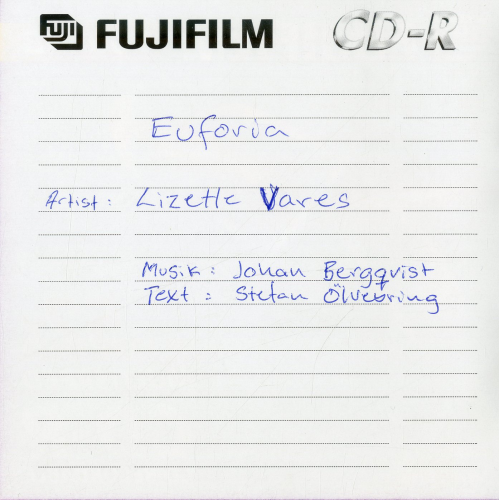 FUJI FUJIFILM CD-R
Euforia
Artist: Lizette Vares
Musik: Johan Bergqvist
Text: Stefan Ölvebring